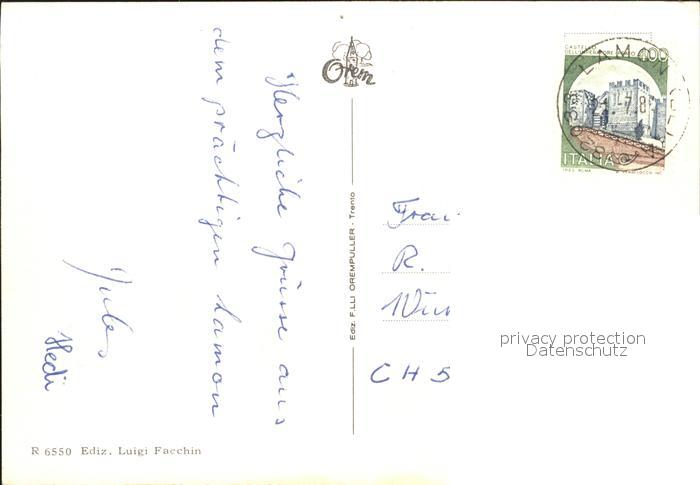 Herzliche Grüsse aus
dem prächtigen Lamon
Jules
Hedi
Orem
Ediz. F.LLI OREMPULLER - Trento
CASTELLO
DELL'IMPERATORE
400
LAMON
ITALIA
Frau
R.
CH 5
privacy protection
Datenschutz
R 6550 Ediz. Luigi Facchin